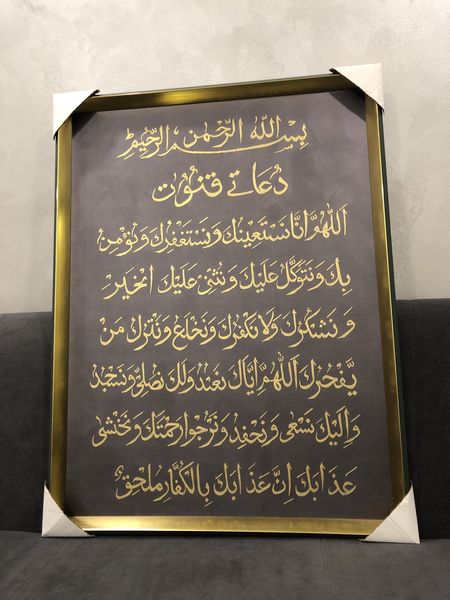 بِسْمِ اللهِ الرَّحْمٰنِ الرَّحِيْمِ
دُعَائے قنُوُت
اَللّٰهُمَّ اِنَّا نَسْتَعِيْنُكَ وَنَسْتَغْفِرُكَ وَنُؤْمِنُ
بِكَ وَنَتَوَكَّلُ عَلَيْكَ وَنُثْنِىْ عَلَيْكَ الْخَيْرَ
وَنَشْكُرُكَ وَلَا نَكْفُرُكَ وَنَخْلَعُ وَنَتْرُكُ مَنْ
يَّفْجُرُكَ اَللّٰهُمَّ اِيَّاكَ نَعْبُدُ وَلَكَ نُصَلِّىْ وَنَسْجُدُ
وَاِلَيْكَ نَسْعٰى وَنَحْفِدُ وَنَرْجُوْا رَحْمَتَكَ وَنَخْشٰى
عَذَابَكَ اِنَّ عَذَابَكَ بِالْكُفَّارِ مُلْحِقٌ